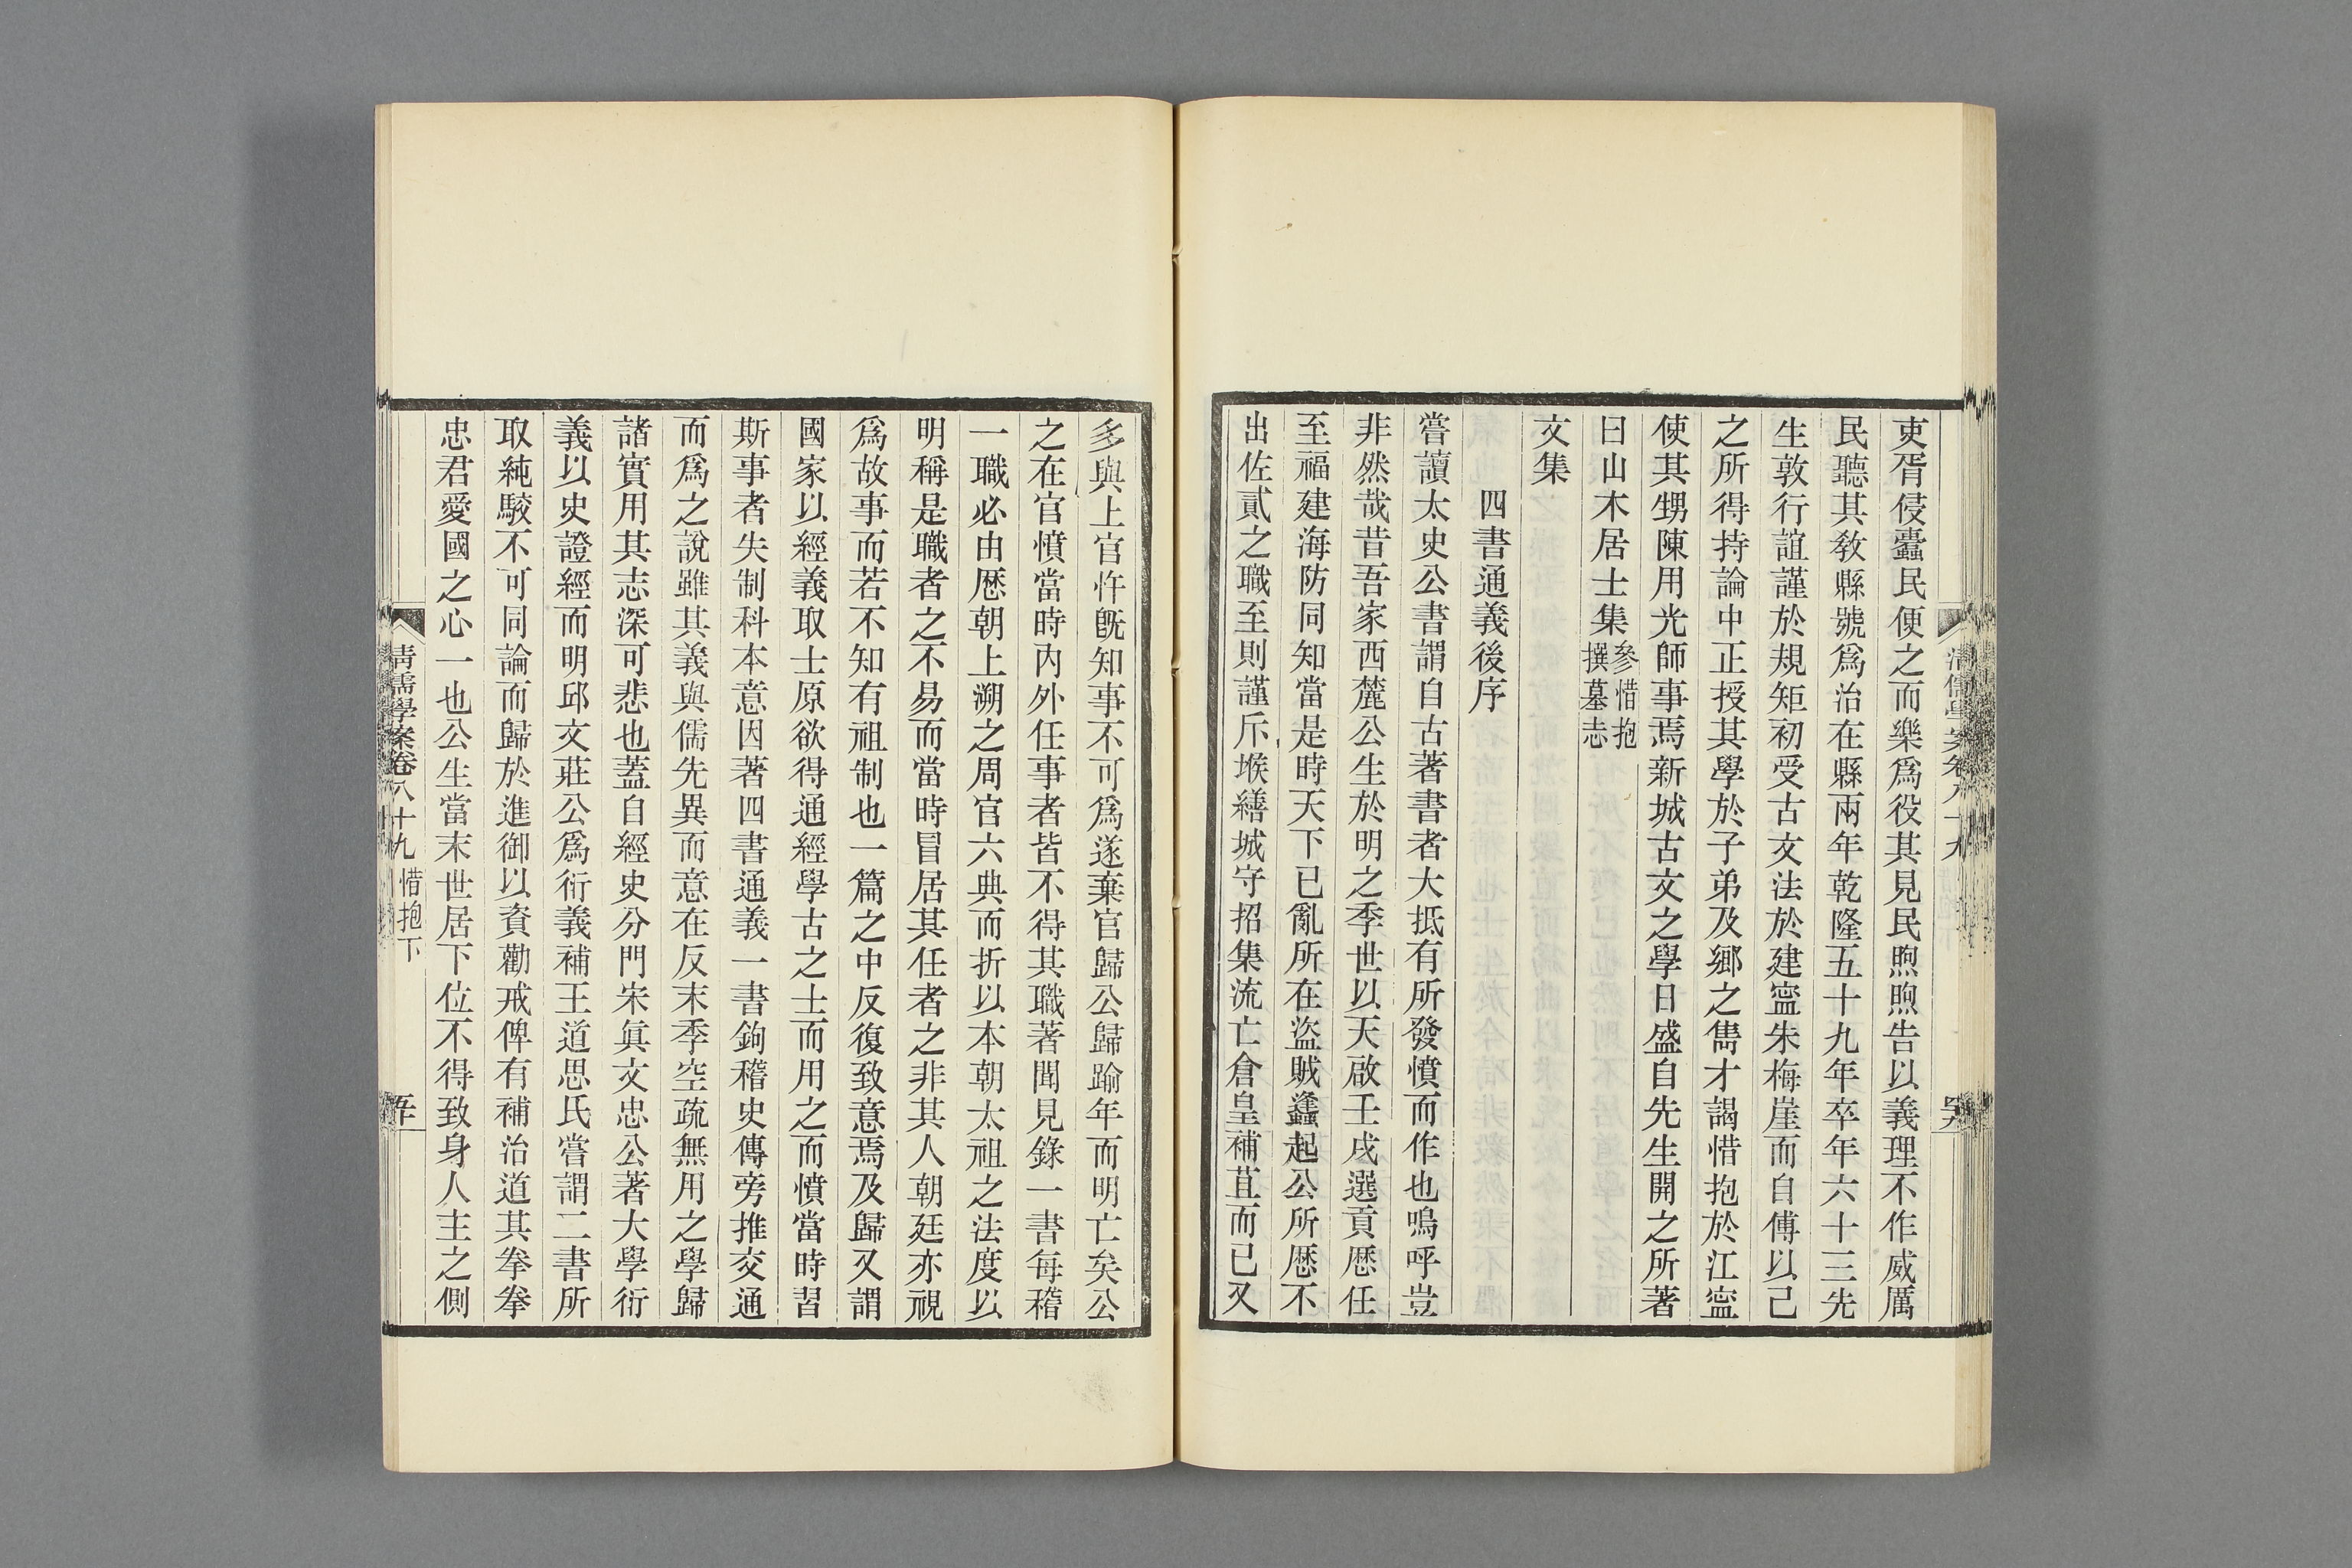 吏胥侵蠹民便之而樂爲役其見民煦煦告以義理不作威厲
民聽其敎縣號爲治在縣兩年乾隆五十九年卒年六十三先
生敦行誼謹於規矩初受古文法於建寧朱梅崖而自傅以己
之所得持論中正授其學於子弟及鄉之雋才謁惜抱於江寧
使其甥陳用光師事焉新城古文之學日盛自先生開之所著
曰山木居士集參惜抱撰墓志
文集
四書通義後序
嘗讀太史公書謂自古著書者大抵有所發憤而作也嗚呼豈
非然哉昔吾家西麓公生於明之季世以天啟壬戌選貢歷任
至福建海防同知當是時天下已亂所在盜賊蠭起公所歷不
出佐貳之職至則謹斥堠繕城守招集流亡倉皇補苴而已又
多與上官忤旣知事不可爲遂棄官歸公歸踰年而明亡矣公
之在官憤當時內外任事者皆不得其職著聞見錄一書每稽
一職必由歷朝上溯之周官六典而折以本朝太祖之法度以
明稱是職者之不易而當時冒居其任者之非其人朝廷亦視
爲故事而若不知有祖制也一篇之中反復致意焉及歸又謂
國家以經義取士原欲得通經學古之士而用之而憤當時習
斯事者失制科本意因著四書通義一書鉤稽史傳旁推交通
而爲之說雖其義與儒先異而意在反末季空疏無用之學歸
諸實用其志深可悲也蓋自經史分門宋眞文忠公著大學衍
義以史證經而明邱文莊公爲衍義補王道思氏嘗謂二書所
取純駁不可同論而歸於進御以資勸戒俾有補治道其拳拳
忠君愛國之心一也公生當末世居下位不得致身人主之側
清儒學案卷八十九 惜抱下